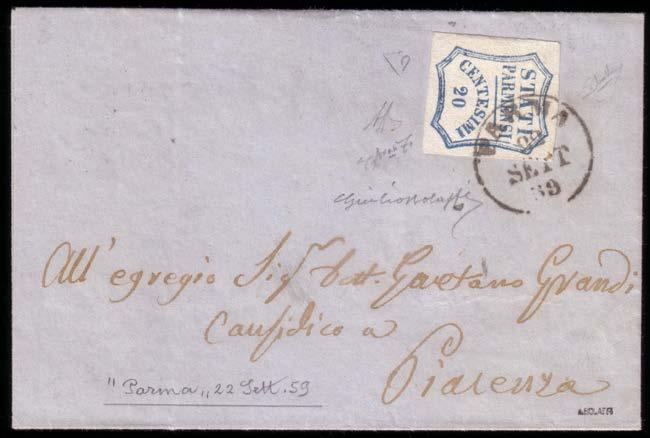 STATI
PARMENSI
CENTESIMI
20
PARMA
SETT
59
GiulioBolaffi
All' egregio Sig. Dott. Gaetano Grandi
Causidico a
Piacenza
"Parma„ 22 Sett. 59
A.BOLAFFI